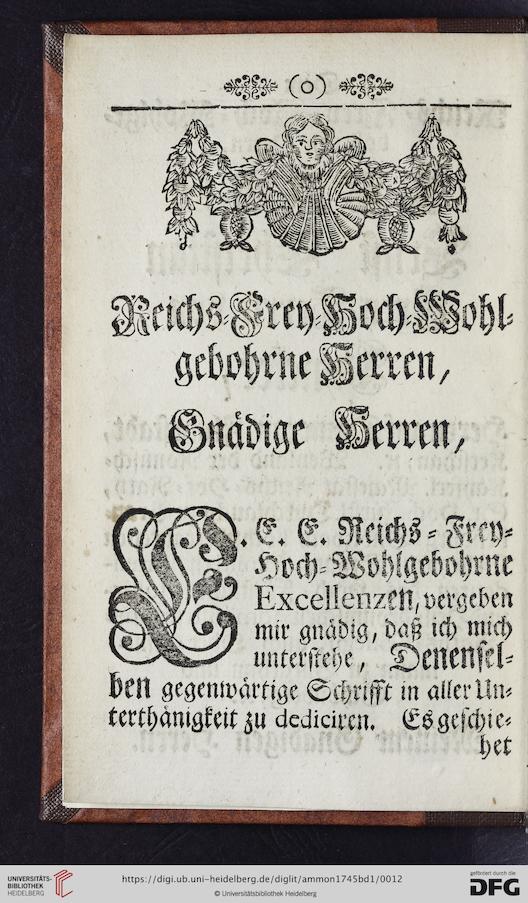 (o)
Reichs-Frey-Hoch-Wohl-
gebohrne Herren,
Gnädige Herren,
E. E. E. Reichs-Frey-
Hoch-Wohlgebohrne
Excellenzen, vergeben
mir gnädig, daß ich mich
unterstehe, Denensel-
ben gegenwärtige Schrifft in aller Un-
terthänigkeit zu dediciren. Es geschie-
het
UNIVERSITÄTS-
BIBLIOTHEK
HEIDELBERG
https://digi.ub.uni-heidelberg.de/diglit/ammon1745bd1/0012
© Universitätsbibliothek Heidelberg
gefördert durch die
DFG